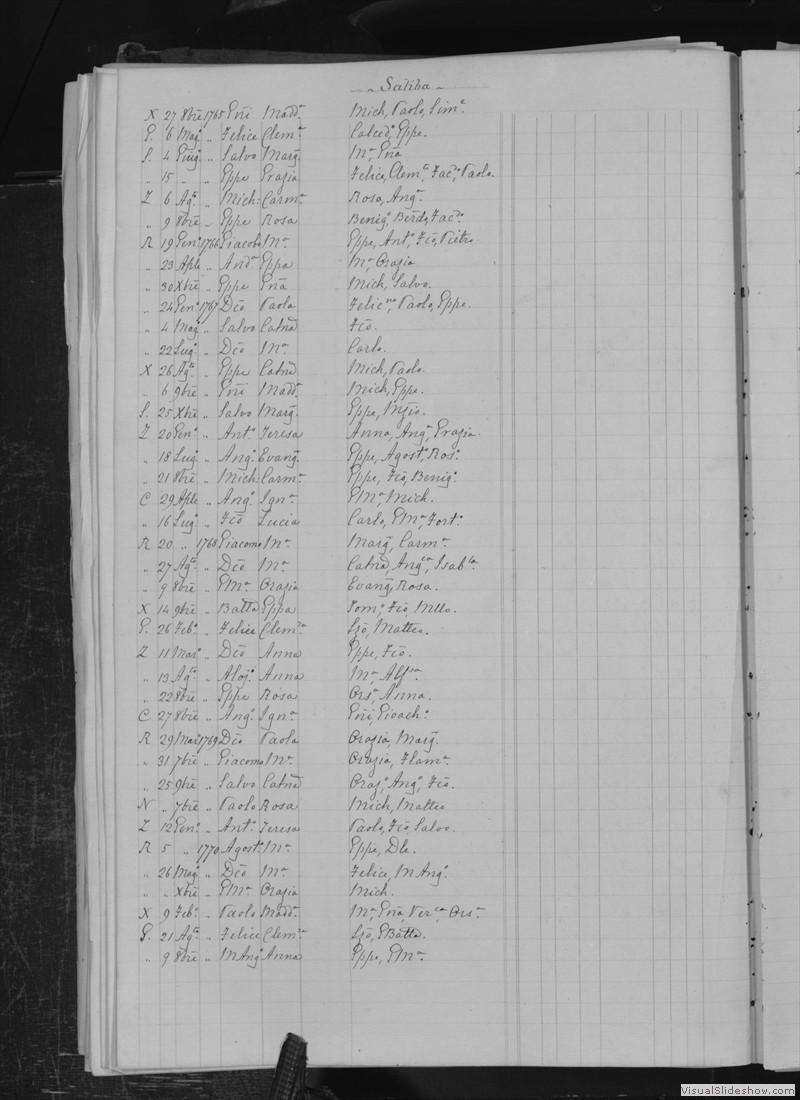 Saliba
X 27 8bre 1765 Gni Madda Mich, Paolo, Sime
G. 6 Mago „ Felice Clema Calcedo, Gppe.
S. 4 Giugo „ Salvo Marga Ma, Gna
„ 15 „ „ Gppe Grazia Felice, Clemte, Faco, Paolo.
Z 6 Agto „ Mich: Carma Rosa, Anga.
„ 9 8bre „ Gppe Rosa Benigo, Berdo, Faco.
R 19 Geno 1766 Giacobo Ma Gppe, Anto, Fco, Pietro
„ 23 Aple „ Anda Gppa Ma, Orazia
„ 30 Xbre „ Gppe Gna Mich, Salvo.
„ 24 Geno 1767 Dco Paola Felicno, Paolo, Gppe.
„ 4 Mago „ Salvo Catna Fco.
„ 22 Lugo „ Dco Ma Carlo.
X 26 Agto „ Gppe Catna Mich, Paolo.
„ 6 9bre „ Gni Madda Mich, Gppe.
S. 25 Xbre „ Salvo Marga Gppe, Vnzio.
Z 20 Geno „ Anto Teresa Anna, Anga, Grazia.
„ 18 Lugo „ Ango Evanga Gppe, Agosto, Roso.
„ 21 8bre „ Mich: Carma Gppe, Fco, Benigo.
C 29 Aple „ Ango Igna GMa, Mich.
„ 16 Lugo „ Fco Lucia Carlo, GMa, Forto.
R 20 „ 1768 Giacomo Ma Marga, Carma.
„ 27 Agto „ Dco Ma Catna, Angca, Isabla.
„ 9 8bre „ GMa Orazia Evanga, Rosa.
X 14 9bre „ Batta Gppa Tomo, Fco, Mllo.
G. 26 Febo „ Felice Clemza Lzo, Matteo.
Z 11 Maro „ Dco Anna Gppe, Fco.
„ 13 Agto „ Alojo Anna Ma, Alfsa.
„ 22 8bre „ Gppe Rosa Orsa, Anna.
C 27 8bre „ Ango Igna Gni, Gioacho.
R 29 Maro 1769 Dco Paola Orazia, Marga.
„ 31 7bre „ Giacomo Ma Orazia, Flama.
„ 25 9bre „ Salvo Catna Orazo, Ango, Fco.
N „ 7bre „ Paolo Rosa Mich, Matteo
Z 12 Geno „ Anto Teresa Paolo, Fco, Salvo.
R 5 „ 1770 Agosto Ma Gppe, Dle.
„ 26 Mago „ Dco Ma Felice, MAngo.
„ „ Xbre „ GMa Orazia Mich.
X 9 Febo „ Paolo Madda Ma, Gna, Verca, Orsa
G. 21 Agto „ Felice Clemza Lzo, GBatta.
„ 9 8bre „ MAngo Anna Gppe, GMa.
VisualSlideshow.com